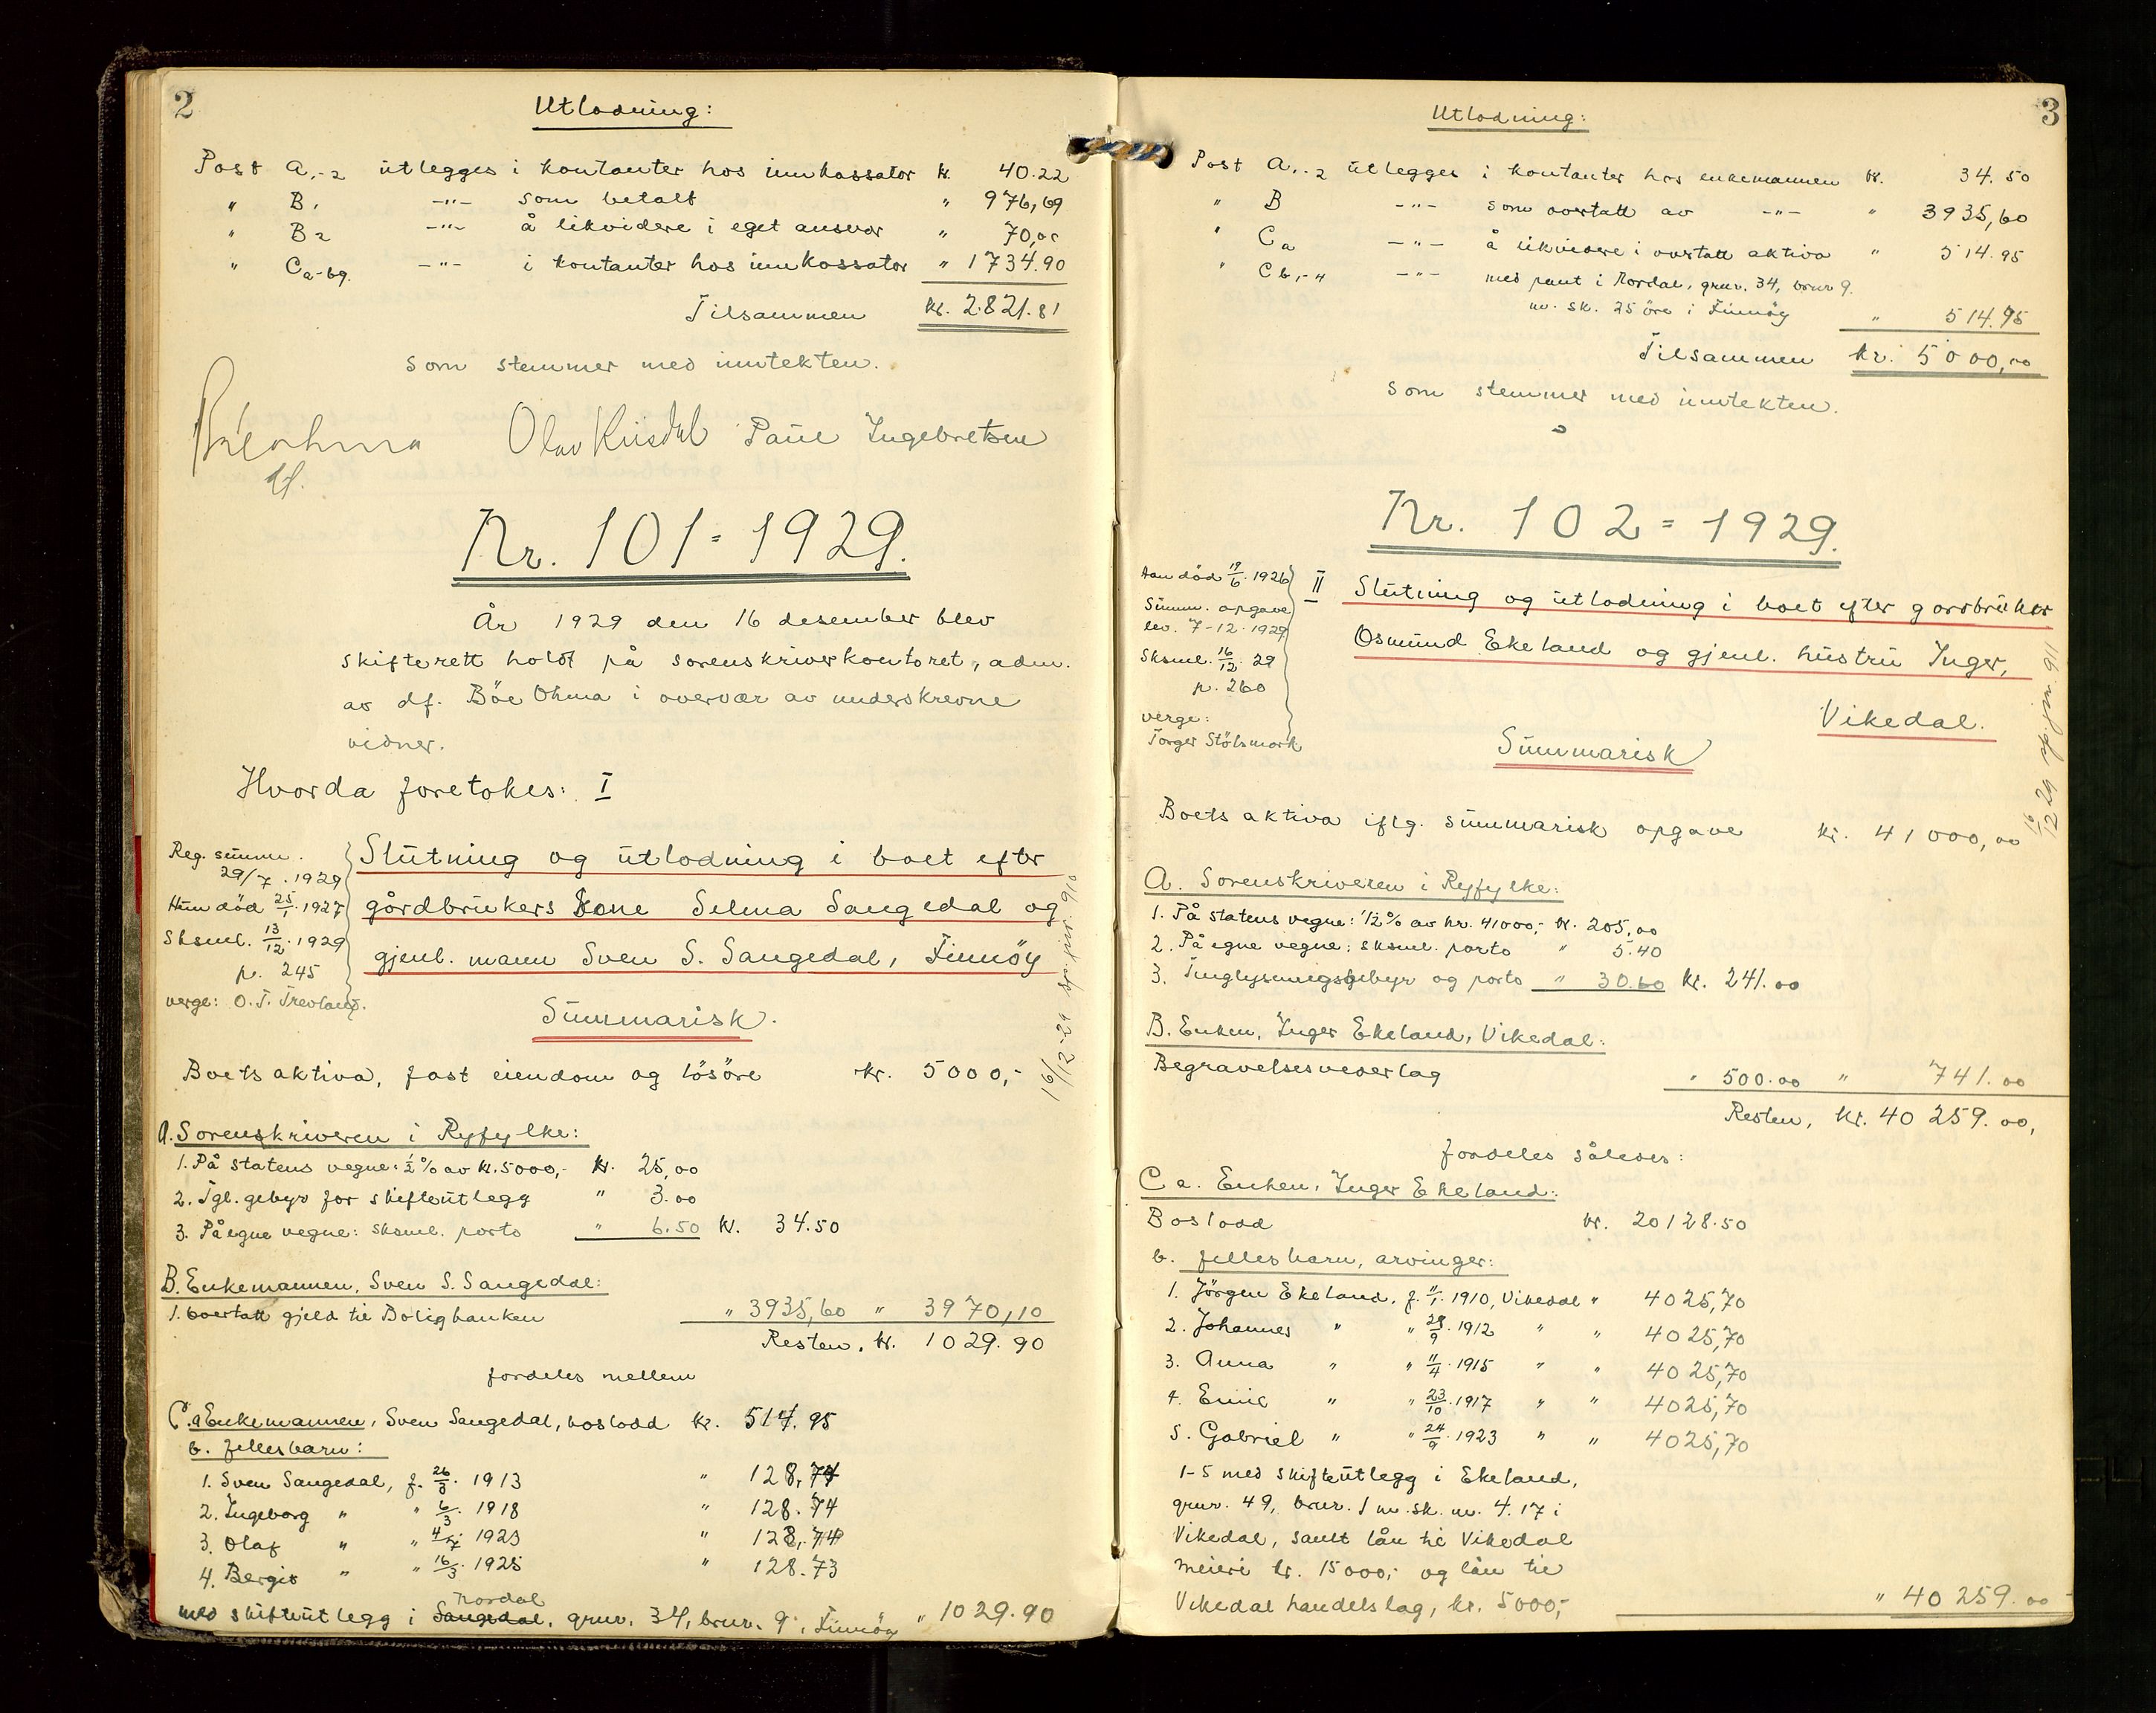 2
Utlodning:
Post A,-2 utlegges i kontanter hos innkassator kr. 40.22
" B1 -"- som betalt " 976,69
" B2 -"- å likvidere i eget ansvar " 70,00
" Ca-bg. -"- i kontanter hos innkassator " 1734.90
Tilsammen kr. 2821.81
som stemmer med inntekten.
Olav Kvisdal Paul Ingebretsen
Nr. 101 = 1929.
År 1929 den 16 desember blev
skifterett holdt på sorenskriverkontoret, adm.
av df. Böe Ohma i overvær av underskrevne
vidner.
Hvorda foretokes: I
Reg. summ.
29/7. 1929
Hun död 25/1. 1927
Sksml. 13/12. 1929
p. 245
verge: O. T. Trevland.
Slutning og utlodning i boet efter
gårdbrukers kone Selma Sangedal og
gjenl. mann Sven S. Sangedal, Finnöy
16/12-29 sp. jnr. 910
Summarisk.
Boets aktiva, fast eiendom og lösöre kr. 5000,-
A. Sorenskriveren i Ryfylke:
1. På statens vegne: ½% av kr. 5000,- kr. 25,00
2. Tgl. gebyr for skifteutlegg " 3.00
3. På egne vegne: sksml. porto " 6.50 kr. 34.50
B. Enkemannen, Sven S. Sangedal:
1. overtatt gjeld til Boligbanken " 3935,60 " 3970,10
Resten, kr. 1029.90
fordeles mellem
C. a Enkemannen, Sven Sangedal, boslodd kr. 514.95
b. fellesbarn:
1. Sven Sangedal, f. 26/8. 1913 " 128,74
2. Ingeborg " " 6/3. 1918 " 128.74
3. Olaf " " 4/7 1923 " 128,74
4. Bergit " " 16/3. 1925 " 128.73
Nordal
med skifteutlegg i Sangedal, gnr. 34, brnr. 9 i Finnöy " 1029.90
3
Utlodning:
Post A,-2 utlegges i kontanter hos enkemannen kr. 34.50
" B -"- som overtatt av -"- " 3935,60
" Ca -"- å likvidere i overtatt aktiva " 514.95
" Cb,-4 -"- med pant i Nordal, gnr. 34, brnr 9.
m. sk. 25 öre i Finnöy " 514.95
Tilsammen kr. 5000,00
som stemmer med inntekten.
Nr. 102 = 1929.
Han död 19/6. 1926
Summ. opgave
lev. 7-12-1929
Sksml. 16/12. 29
p. 260
verge:
Torger Stölsmark
II Slutning og utlodning i boet efter gårdbruker
Osmund Ekeland og gjenl. hustru Inger,
Vikedal.
16/12 29 sp. jnr. 911
Summarisk
Boets aktiva iflg. summarisk opgave kr. 41000,00
A. Sorenskriveren i Ryfylke:
1. På statens vegne: ½% av kr. 41000,- kr. 205,00
2. På egne vegne: sksml. porto " 5.40
3. Tinglysningsgebyr og porto " 30.60 kr. 241.00
B. Enken, Inger Ekeland, Vikedal:
Begravelsesvederlag " 500.00 " 741.00
Resten, kr. 40259.00,
fordeles således:
C a. Enken, Inger Ekeland:
Boslodd kr. 20128.50
b. fellesbarn, arvinger:
1. Jörgen Ekeland, f. 11/1. 1910, Vikedal " 4025,70
2. Johannes " " 28/9. 1912 " " 4025,70
3. Anna " " 11/4. 1915 " " 4025,70
4. Emil " " 23/10. 1917 " " 4025,70
5. Gabriel " " 24/9. 1923 " " 4025,70
1-5 med skifteutlegg i Ekeland,
gnr. 49, brnr. 1 m. sk. m. 4.17 i
Vikedal, samt lån til Vikedal
meieri kr. 15000,- og lån til
Vikedal handelslag, kr. 5000,- " 40259.00